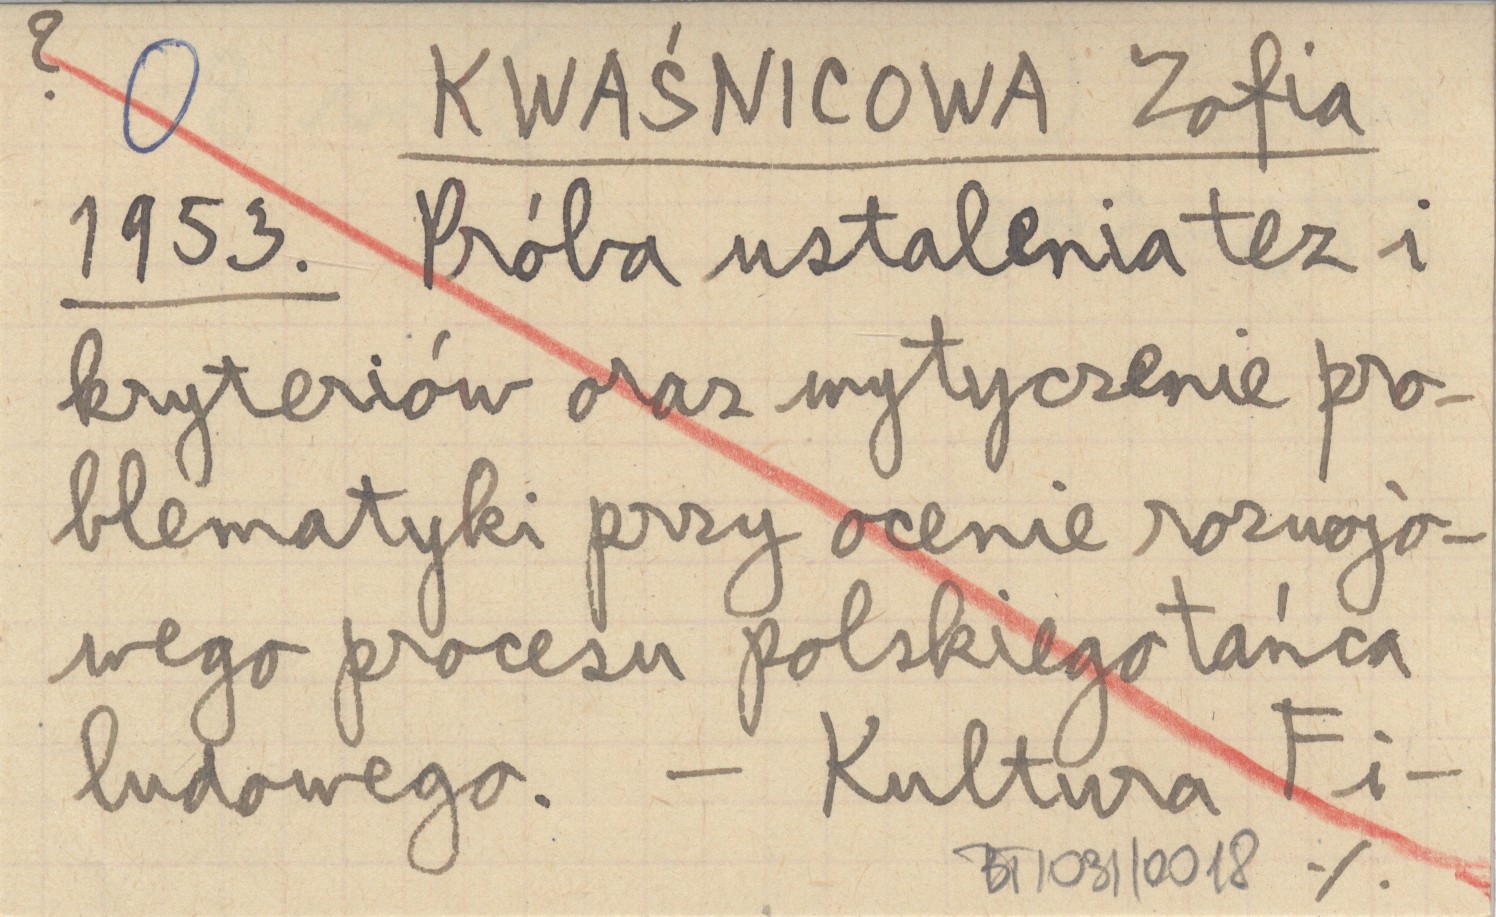 ? 0 KWAŚNICOWA Zofia
1953. Próba ustalenia tez i
kryteriów oraz wytyczenie pro-
blematyki przy ocenie rozwojo-
wego procesu polskiego tańca
ludowego. — Kultura Fi-
BT/031/0018 ./.